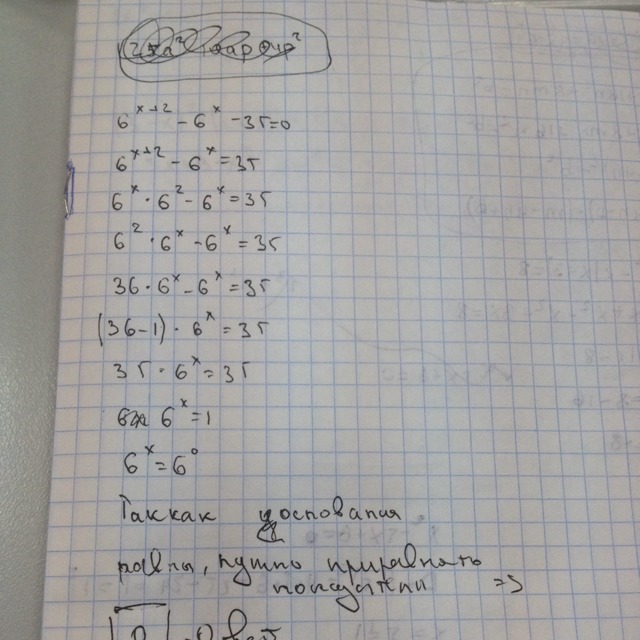 6^(x+2) - 6^x - 35=0
6^(x+2) - 6^x = 35
6^x · 6^2 - 6^x = 35
6^2 · 6^x - 6^x = 35
36 · 6^x - 6^x = 35
(36-1) · 6^x = 35
35 · 6^x = 35
6^x = 1
6^x = 6^0
Так как основания
равны, нужно приравнять
показатели =>